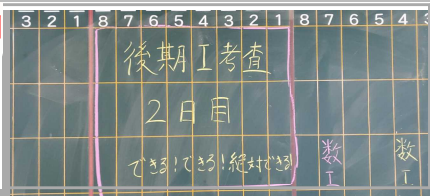 3 2 1 8 7 6 5 4 3 2 1 8 7 6 5 4
後期I考査
2日目
できる!できる!絶対できる!
数I
数I